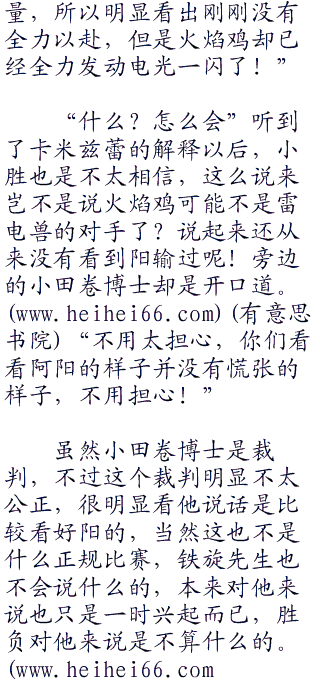 量，所以明显看出刚刚没有
全力以赴，但是火焰鸡却已
经全力发动电光一闪了！”
“什么？怎么会”听到
了卡米兹蕾的解释以后，小
胜也是不太相信，这么说来
岂不是说火焰鸡可能不是雷
电兽的对手了？说起来还从
来没有看到阳输过呢！旁边
的小田卷博士却是开口道。
(www.heihei66.com)(有意思
书院)“不用太担心，你们看
看阿阳的样子并没有慌张的
样子，不用担心！”
虽然小田卷博士是裁
判，不过这个裁判明显不太
公正，很明显看他说话是比
较看好阳的，当然这也不是
什么正规比赛，铁旋先生也
不会说什么的，本来对他来
说也只是一时兴起而已，胜
负对他来说是不算什么的。
(www.heihei66.com